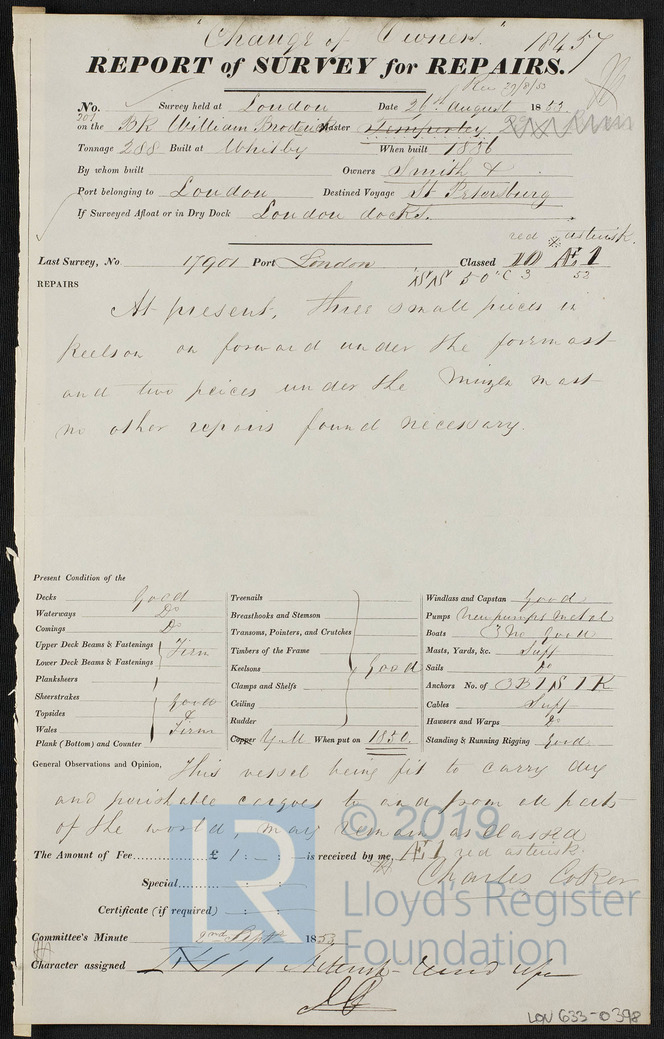 "Change of Owner" 18457
REPORT of SURVEY for REPAIRS.
Rec 29/8/53
No. Survey held at London Date 26th August 1853
201
on the BK William Broderick Master Temperley
Tonnage 288 Built at Whitby When built 1836
By whom built Owners Smith &
Port belonging to London Destined Voyage St Petersburg
If Surveyed Afloat or in Dry Dock London docks.
red asterisk.
Last Survey, No 17901 Port London Classed Æ 1
50 C 3 52
REPAIRS
At present, three small pieces in
Keelson on forward under the foremast
and two peices under the Mizen mast
no other repairs found necessary.
Present Condition of the
Decks good
Waterways Do
Comings Do
Upper Deck Beams & Fastenings Firm
Lower Deck Beams & Fastenings
Planksheers
Sheerstrakes good
Topsides &
Wales Firm
Plank (Bottom) and Counter
Treenails
Breasthooks and Stemson
Transoms, Pointers, and Crutches
Timbers of the Frame
Keelsons good
Clamps and Shelfs
Ceiling
Rudder
Copper Y.M. When put on 1850.
Windlass and Capstan good
Pumps New pumps metal
Boats good
Masts, Yards, &c. Suff
Sails Do
Anchors No. of 3 B 1 S 1 K
Cables Suff
Hawsers and Warps Do
Standing & Running Rigging good
General Observations and Opinion, This vessel being fit to carry dry
and perishable cargoes to and from all parts
of the world, may remain as classed
The Amount of Fee £ 1 : – : – is received by me, Æ 1 red asterisk.
Charles Coker
Special
Certificate (if required)
Committee's Minute 2nd Septr 1853
Character assigned
© 2019
Lloyd's Register
Foundation
LR
LON 633-0398